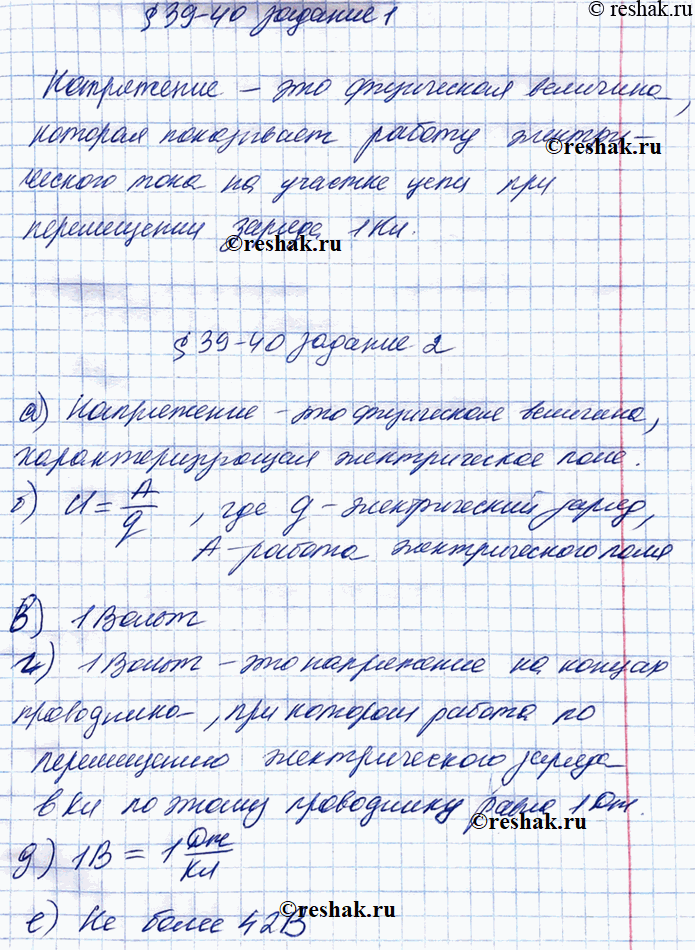 © reshak.ru
§ 39-40 задание 1
Напряжение – это физическая величина,
которая показывает работу электри-
ческого тока на участке цепи при
перемещении заряда 1 Кл.
©reshak.ru
©reshak.ru
§ 39-40 задание 2
а) Напряжение – это физическая величина,
характеризующая электрическое поле.
б) U = A/q , где q – электрический заряд,
A – работа электрического поля
в) 1 Вольт
г) 1 Вольт – это напряжение на концах
проводника, при котором работа по
перемещению электрического заряда
в Кл по этому проводнику равна 1 Дж.
©reshak.ru
д) 1В = 1 Дж/Кл
е) Не более 42В
©reshak.ru